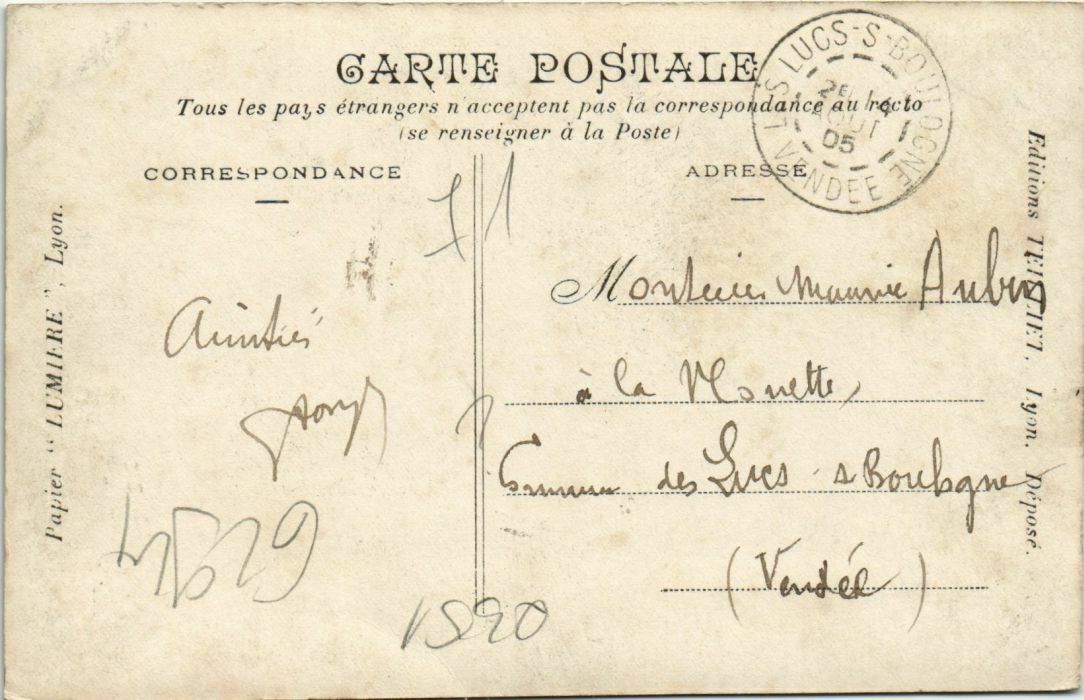 CARTE POSTALE
Tous les pays étrangers n'acceptent pas la correspondance au recto
(se renseigner à la Poste)
LES LUCS-S-BOULOGNE
2E 14
AOUT
05
VENDÉE
CORRESPONDANCE
ADRESSE
71
Amitiés
Monsieur Maurice
à la Monette
Commune des Lucs s Boulogne
(Vendée)
1520
Papier "LUMIERE", Lyon.
Editions Lyon. Déposé.